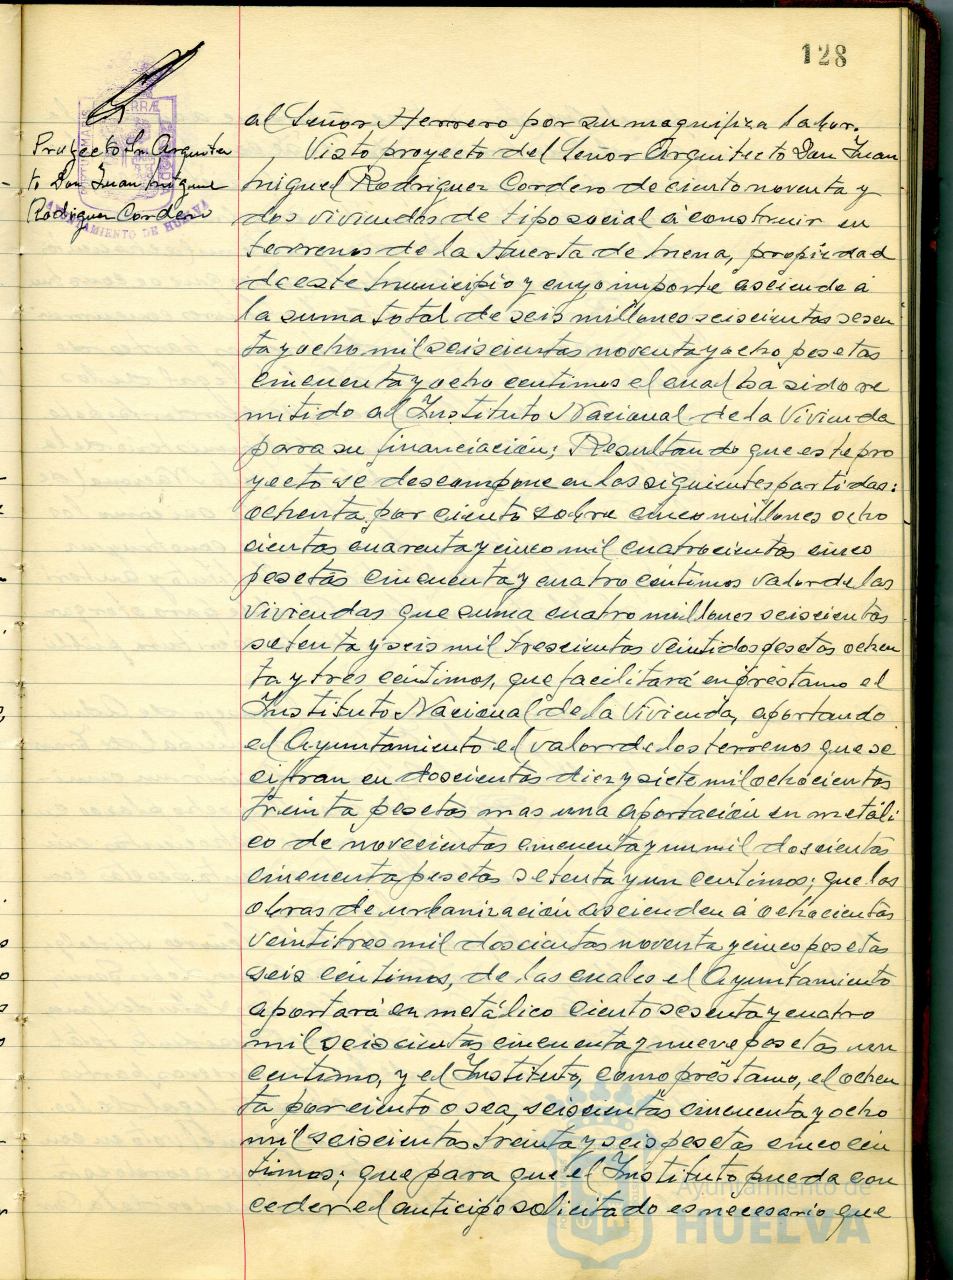 128
Proyecto Sr. Arquitec
to Don Juan Miguel
Rodriguez Cordero
AYUNTAMIENTO DE HUELVA
al Señor Herrero por su magnifica labor.
Visto proyecto del Señor Arquitecto Don Juan
Miguel Rodriguez Cordero de ciento noventa y
dos viviendas de tipo social á construir en
terrenos de la Huerta de Mena, propiedad
de este Municipio y cuyo importe asciende á
la suma total de seis millones seiscientas sesen
ta y ocho mil seiscientas noventa y ocho pesetas
cincuenta y ocho centimos el cual ha sido re
mitido al Instituto Nacional de la Vivienda
para su financiación; Resultando que este pro
yecto se descompone en las siguientes partidas:
ochenta por ciento sobre cinco millones ocho
cientas cuarenta y cinco mil cuatrocientas cinco
pesetas cincuenta y cuatro céntimos valor de las
viviendas que suma cuatro millones seiscientas
setenta y seis mil trescientas veintidos pesetas ochen
ta y tres céntimos, que facilitará en préstamo el
Instituto Nacional de la Vivienda, aportando
el Ayuntamiento el valor de los terrenos que se
cifran en doscientas diez y siete mil ochocientas
treinta pesetas mas una aportación en metáli
co de novecientas cincuenta y un mil doscientas
cincuenta pesetas setenta y un centimos; que las
obras de urbanización ascienden á ochocientas
veintitres mil doscientas noventa y cinco pesetas
seis céntimos, de las cuales el Ayuntamiento
aportará en metálico ciento sesenta y cuatro
mil seiscientas cincuenta y nueve pesetas un
centimo, y el Instituto, como préstamo, el ochen
ta por ciento o sea, seiscientas cincuenta y ocho
mil seiscientas treinta y seis pesetas cinco cén
timos; que para que el Instituto pueda con
ceder el anticipo solicitado es necesario que
Ayuntamiento de
HUELVA